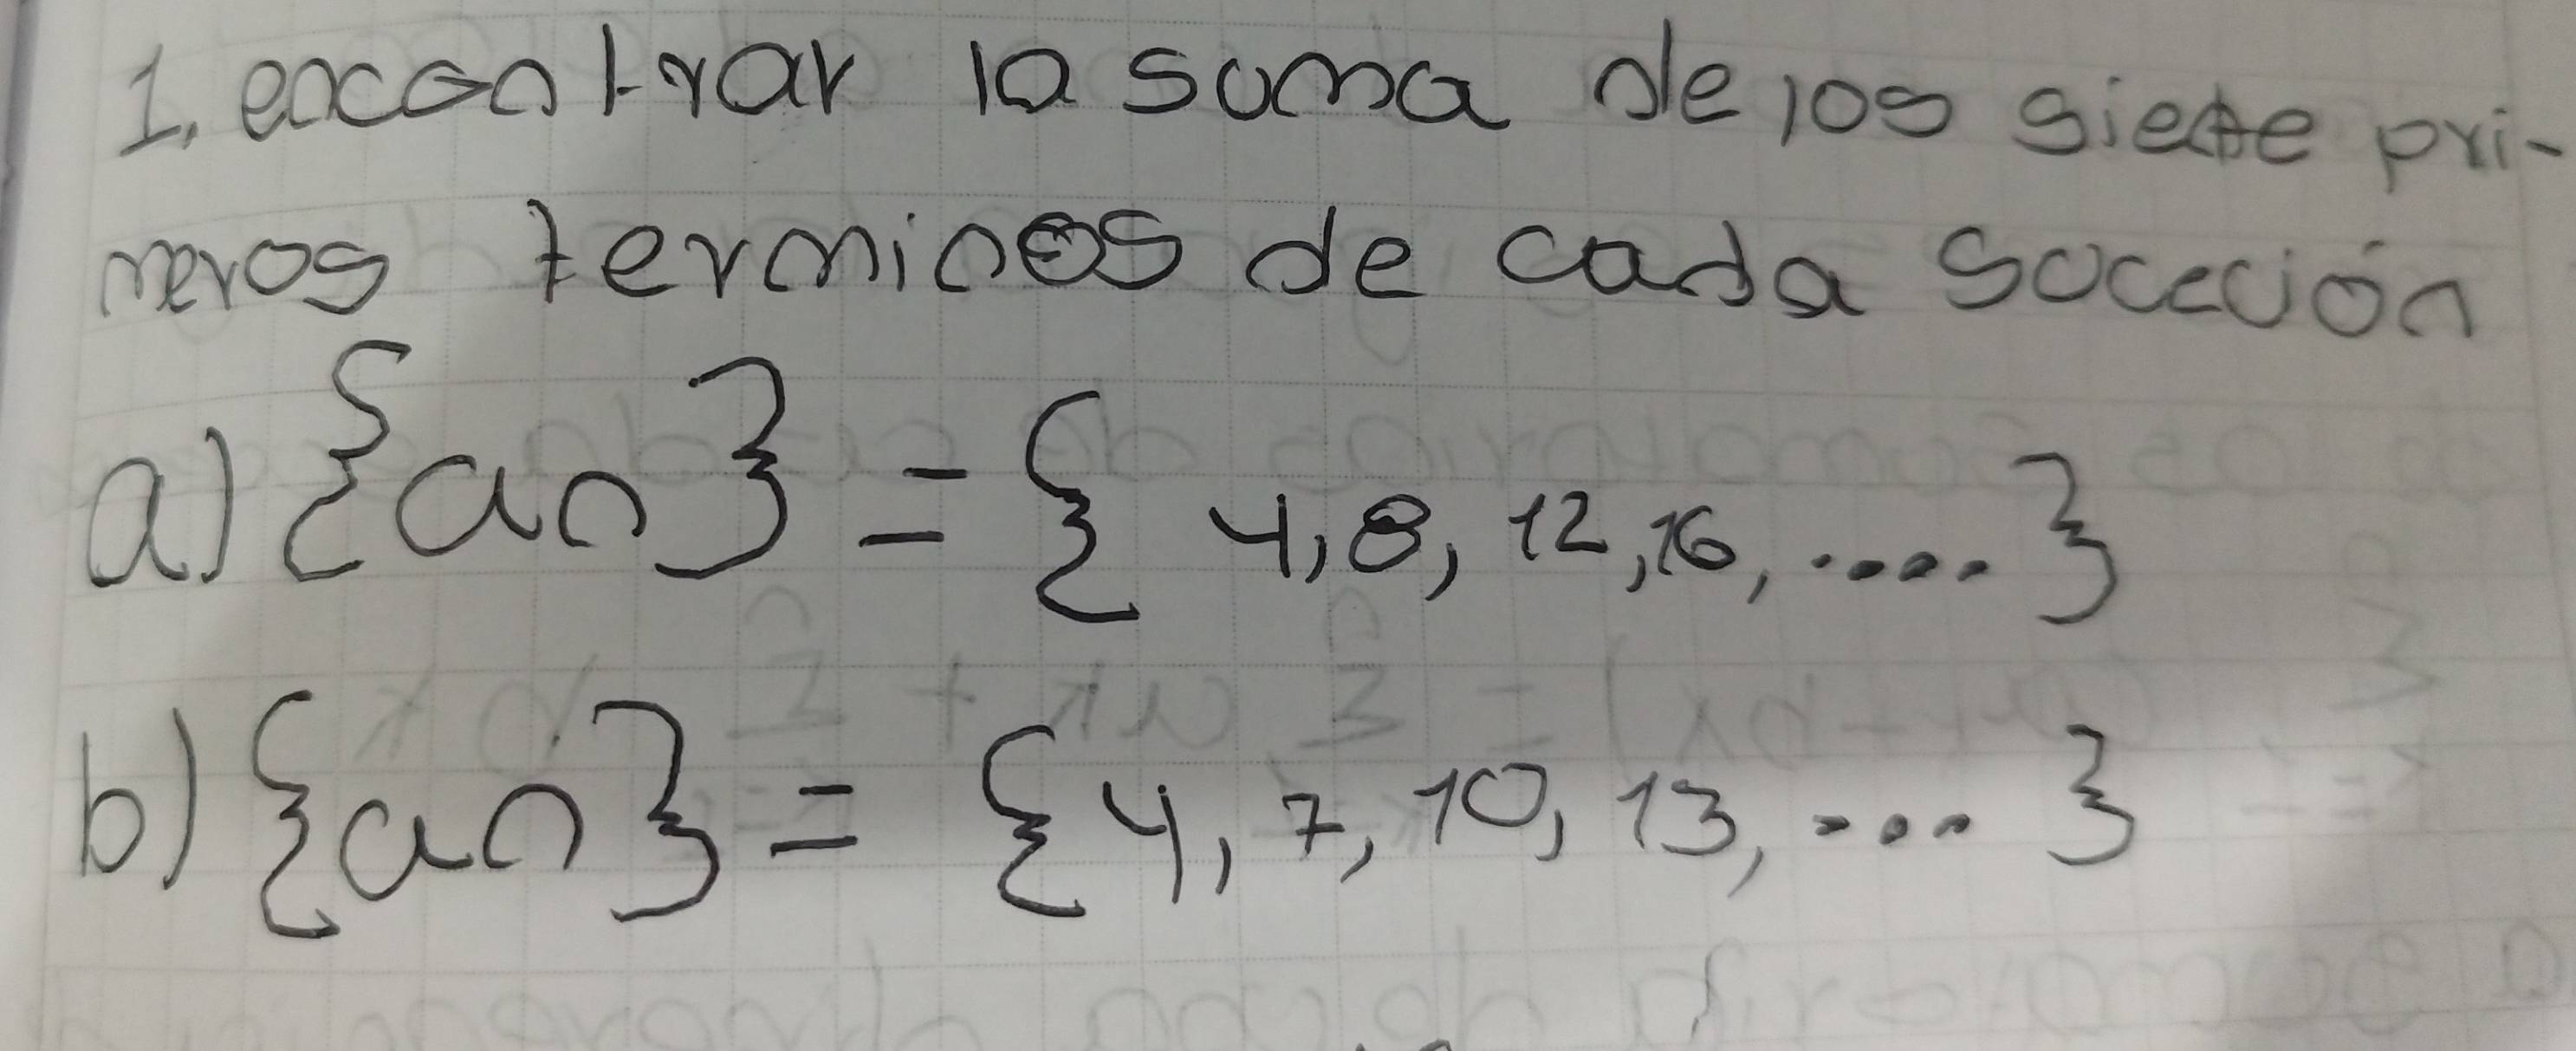 1. encontrar la suma de los siete pri-
meros terminos de cada suceción
a) {an} = { 4, 8, 12, 16, ..... }
b) {an} = { 4, 7, 10, 13, .... }